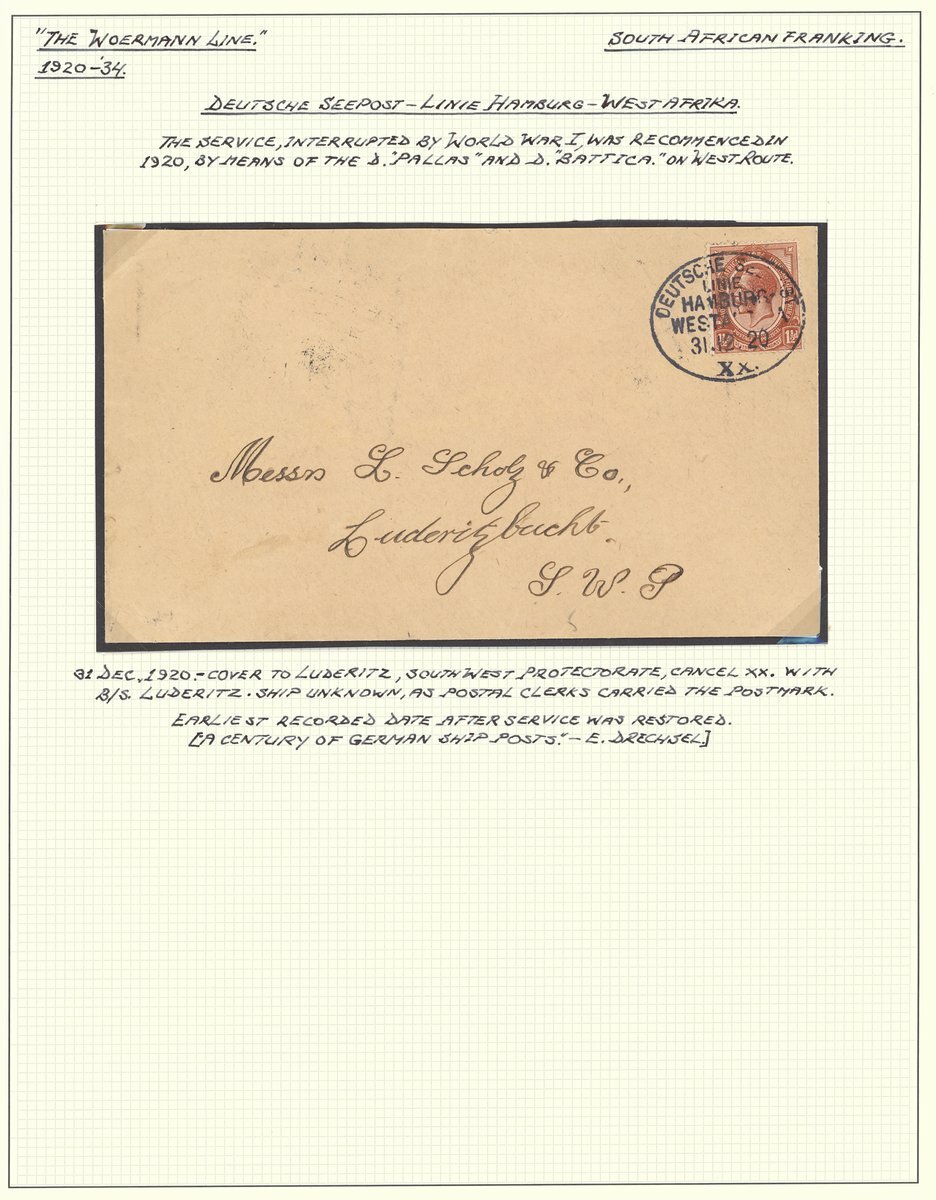 "THE WOERMANN LINE."
SOUTH AFRICAN FRANKING.
1920-'34.
DEUTSCHE SEEPOST - LINIE HAMBURG - WESTAFRIKA.
THE SERVICE, INTERRUPTED BY WORLD WAR I, WAS RECOMMENCED IN
1920, BY MEANS OF THE D. "PALLAS" AND D. "BATTICA." ON WEST ROUTE.
DEUTSCHE
LINIE
HAMBURG
31.12.20
XX.
1½
Messrs L. Scholz & Co.,
Luderitzbucht.
S. W. P
31 DEC, 1920. - COVER TO LUDERITZ, SOUTH WEST PROTECTORATE, CANCEL XX. WITH
B/S. LUDERITZ. SHIP UNKNOWN, AS POSTAL CLERKS CARRIED THE POSTMARK.
EARLIEST RECORDED DATE AFTER SERVICE WAS RESTORED.
[A CENTURY OF GERMAN SHIP POSTS." - E. DRECHSEL.]